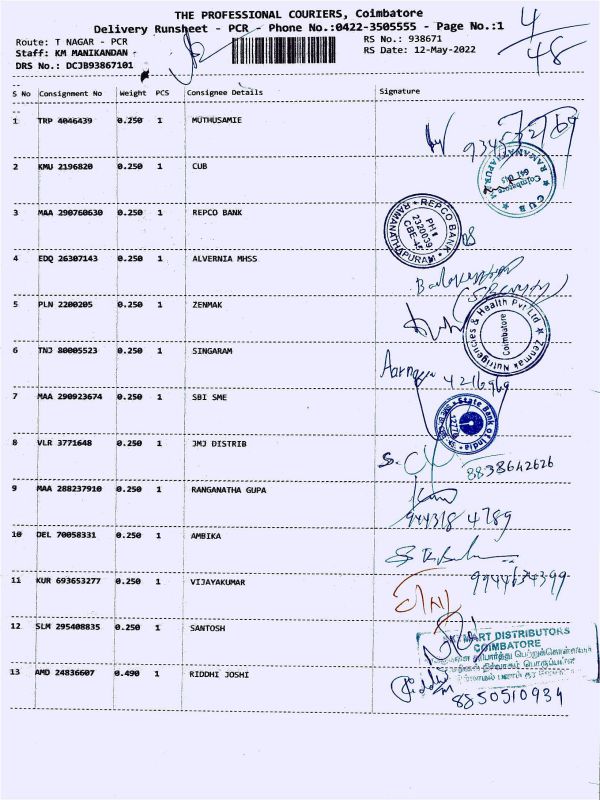 THE PROFESSIONAL COURIERS, Coimbatore
Delivery Runsheet - PCR - Phone No.:0422-3505555 - Page No.:1
Route: T NAGAR - PCR
RS No.: 938671
Staff: KM MANIKANDAN -
RS Date: 12-May-2022
DRS No.: DCJB93867101
4/48
S No Consignment No Weight PCS Consignee Details Signature
1 TRP 4046439 0.250 1 MUTHUSAMIE
2 KMU 2196820 0.250 1 CUB
CUB RAMANATHAPURAM Coimbatore
3 MAA 290760630 0.250 1 REPCO BANK
REPCO BANK RAMANATHAPURAM PH: 2320039 CBE-45
4 EDQ 26307143 0.250 1 ALVERNIA MHSS
5 PLN 2200205 0.250 1 ZENMAK
Zenmak Nutrigences & Health Pvt Ltd Coimbatore
6 TNJ 80005523 0.250 1 SINGARAM
4216969
7 MAA 290923674 0.250 1 SBI SME
State Bank of India 12770
8 VLR 3771648 0.250 1 JMJ DISTRIB
8838642626
9 MAA 288237910 0.250 1 RANGANATHA GUPA
944318 4789
10 DEL 70058331 0.250 1 AMBIKA
9944634399
11 KUR 693653277 0.250 1 VIJAYAKUMAR
12 SLM 295408835 0.250 1 SANTOSH
MART DISTRIBUTORS
COIMBATORE
13 AMD 24836607 0.490 1 RIDDHI JOSHI
Riddhi
8850510934